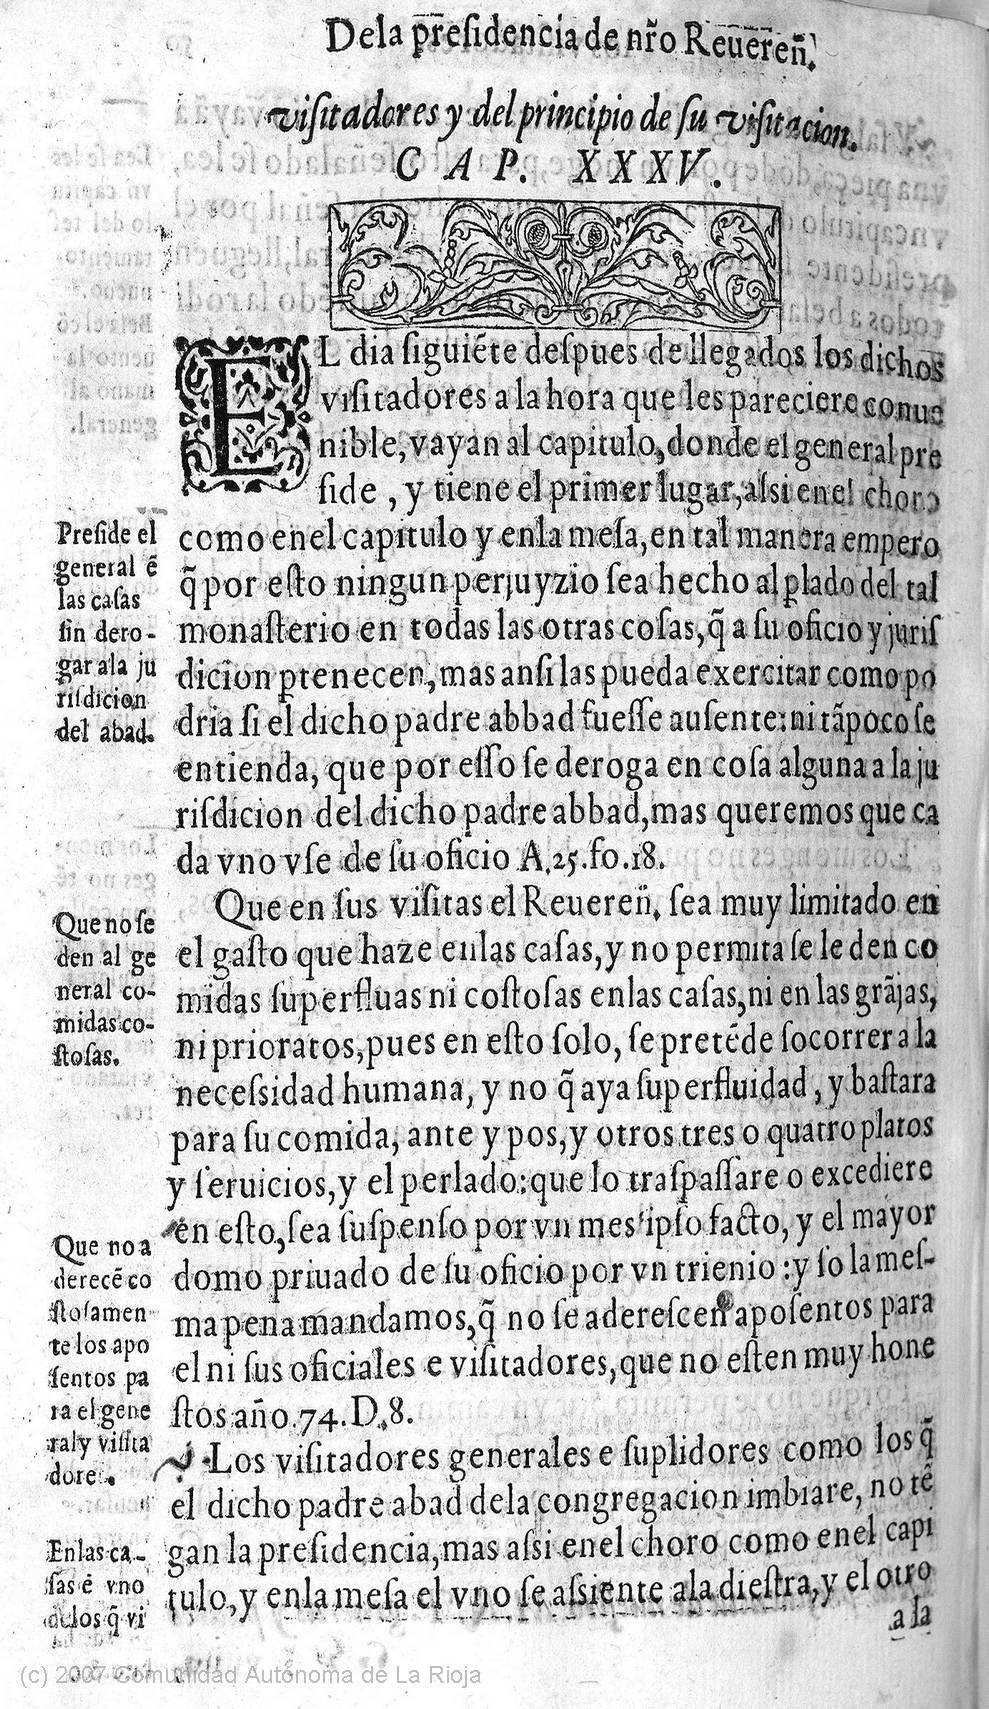 Dela p̃reſidencia de nr̃o Reueren̄.
viſitadores y del principio de ſu viſitacion.
CAP. XXXV.
EL dia ſiguiẽte deſpues de llegados los dichos
viſitadores a la hora que les pareciere conue
nible, vayan al capitulo, donde el general pre
ſide , y tiene el primer lugar, aſsi enel choro
como enel capitulo y enla meſa, en tal manera empero
q̃ por eſto ningun perjuyzio ſea hecho al ꝑlado del tal
monaſterio en todas las otras coſas, q̃ a ſu oficio y juriſ
dicion ꝑtenecen, mas anſi las pueda exercitar como po
dria ſi el dicho padre abbad fueſſe auſente: ni tãpoco ſe
entienda, que por eſſo ſe deroga en coſa alguna a la ju
riſdicion del dicho padre abbad, mas queremos que ca
da vno vſe de ſu oficio A.25.fo.18.
Que en ſus viſitas el Reueren̄. ſea muy limitado en
el gaſto que haze enlas caſas, y no permita ſe le den co
midas ſuperfluas ni coſtoſas enlas caſas, ni en las grãjas,
ni prioratos, pues en eſto ſolo, ſe pretẽde ſocorrer a la
neceſsidad humana, y no q̃ aya ſuperfluidad , y baſtara
para ſu comida, ante y pos, y otros tres o quatro platos
y ſeruicios, y el perlado: que lo traſpaſſare o excediere
en eſto, ſea ſuſpenſo por vn mes ipſo facto, y el mayor
domo priuado de ſu oficio por vn trienio : y ſo la meſ-
ma pena mandamos, q̃ no ſe adereſcen apoſentos para
el ni ſus oficiales e viſitadores, que no eſten muy hone
ſtos año.74.D.8.
Los viſitadores generales e ſuplidores como los q̃
el dicho padre abad dela congregacion imbiare, no tẽ
gan la preſidencia, mas aſsi enel choro como enel capi
tulo, y enla meſa el vno ſe aſsiente ala dieſtra, y el otro
a la
Preſide el
general ẽ
las caſas
ſin dero-
gar ala ju
riſdicion
del abad.
Que no ſe
den al ge
neral co-
midas co-
ſtoſas.
Que no a
derecẽ co
ſtoſamen
te los apo
ſentos pa
ra el gene
ral y viſita
dores.
Enlas ca-
ſas ẽ vno
delos q̃ vi
(c) 2007 Comunidad Autónoma de La Rioja